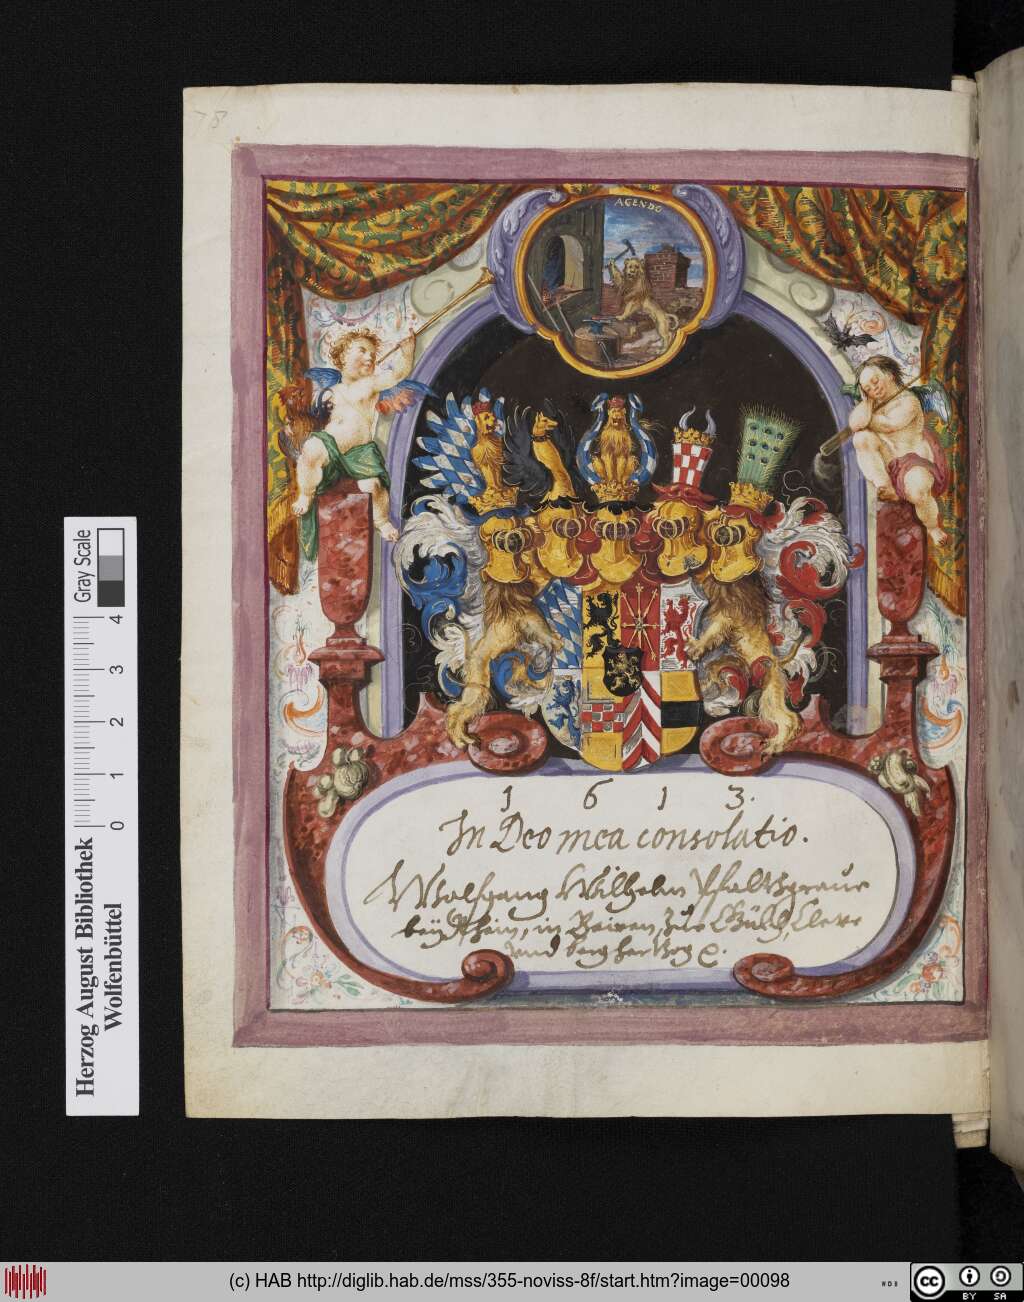 78
AGENDO
1 6 1 3.
In Deo mea consolatio.
Wolfgang Wilhelm Pfaltzgraue
beÿ Rhein, in Beiren, zue Gülch, Cleve
vnd berg hertzog
Gray Scale
0 1 2 3 4
Herzog August Bibliothek
Wolfenbüttel
(c) HAB http://diglib.hab.de/mss/355-noviss-8f/start.htm?image=00098
WDB
cc
BY SA